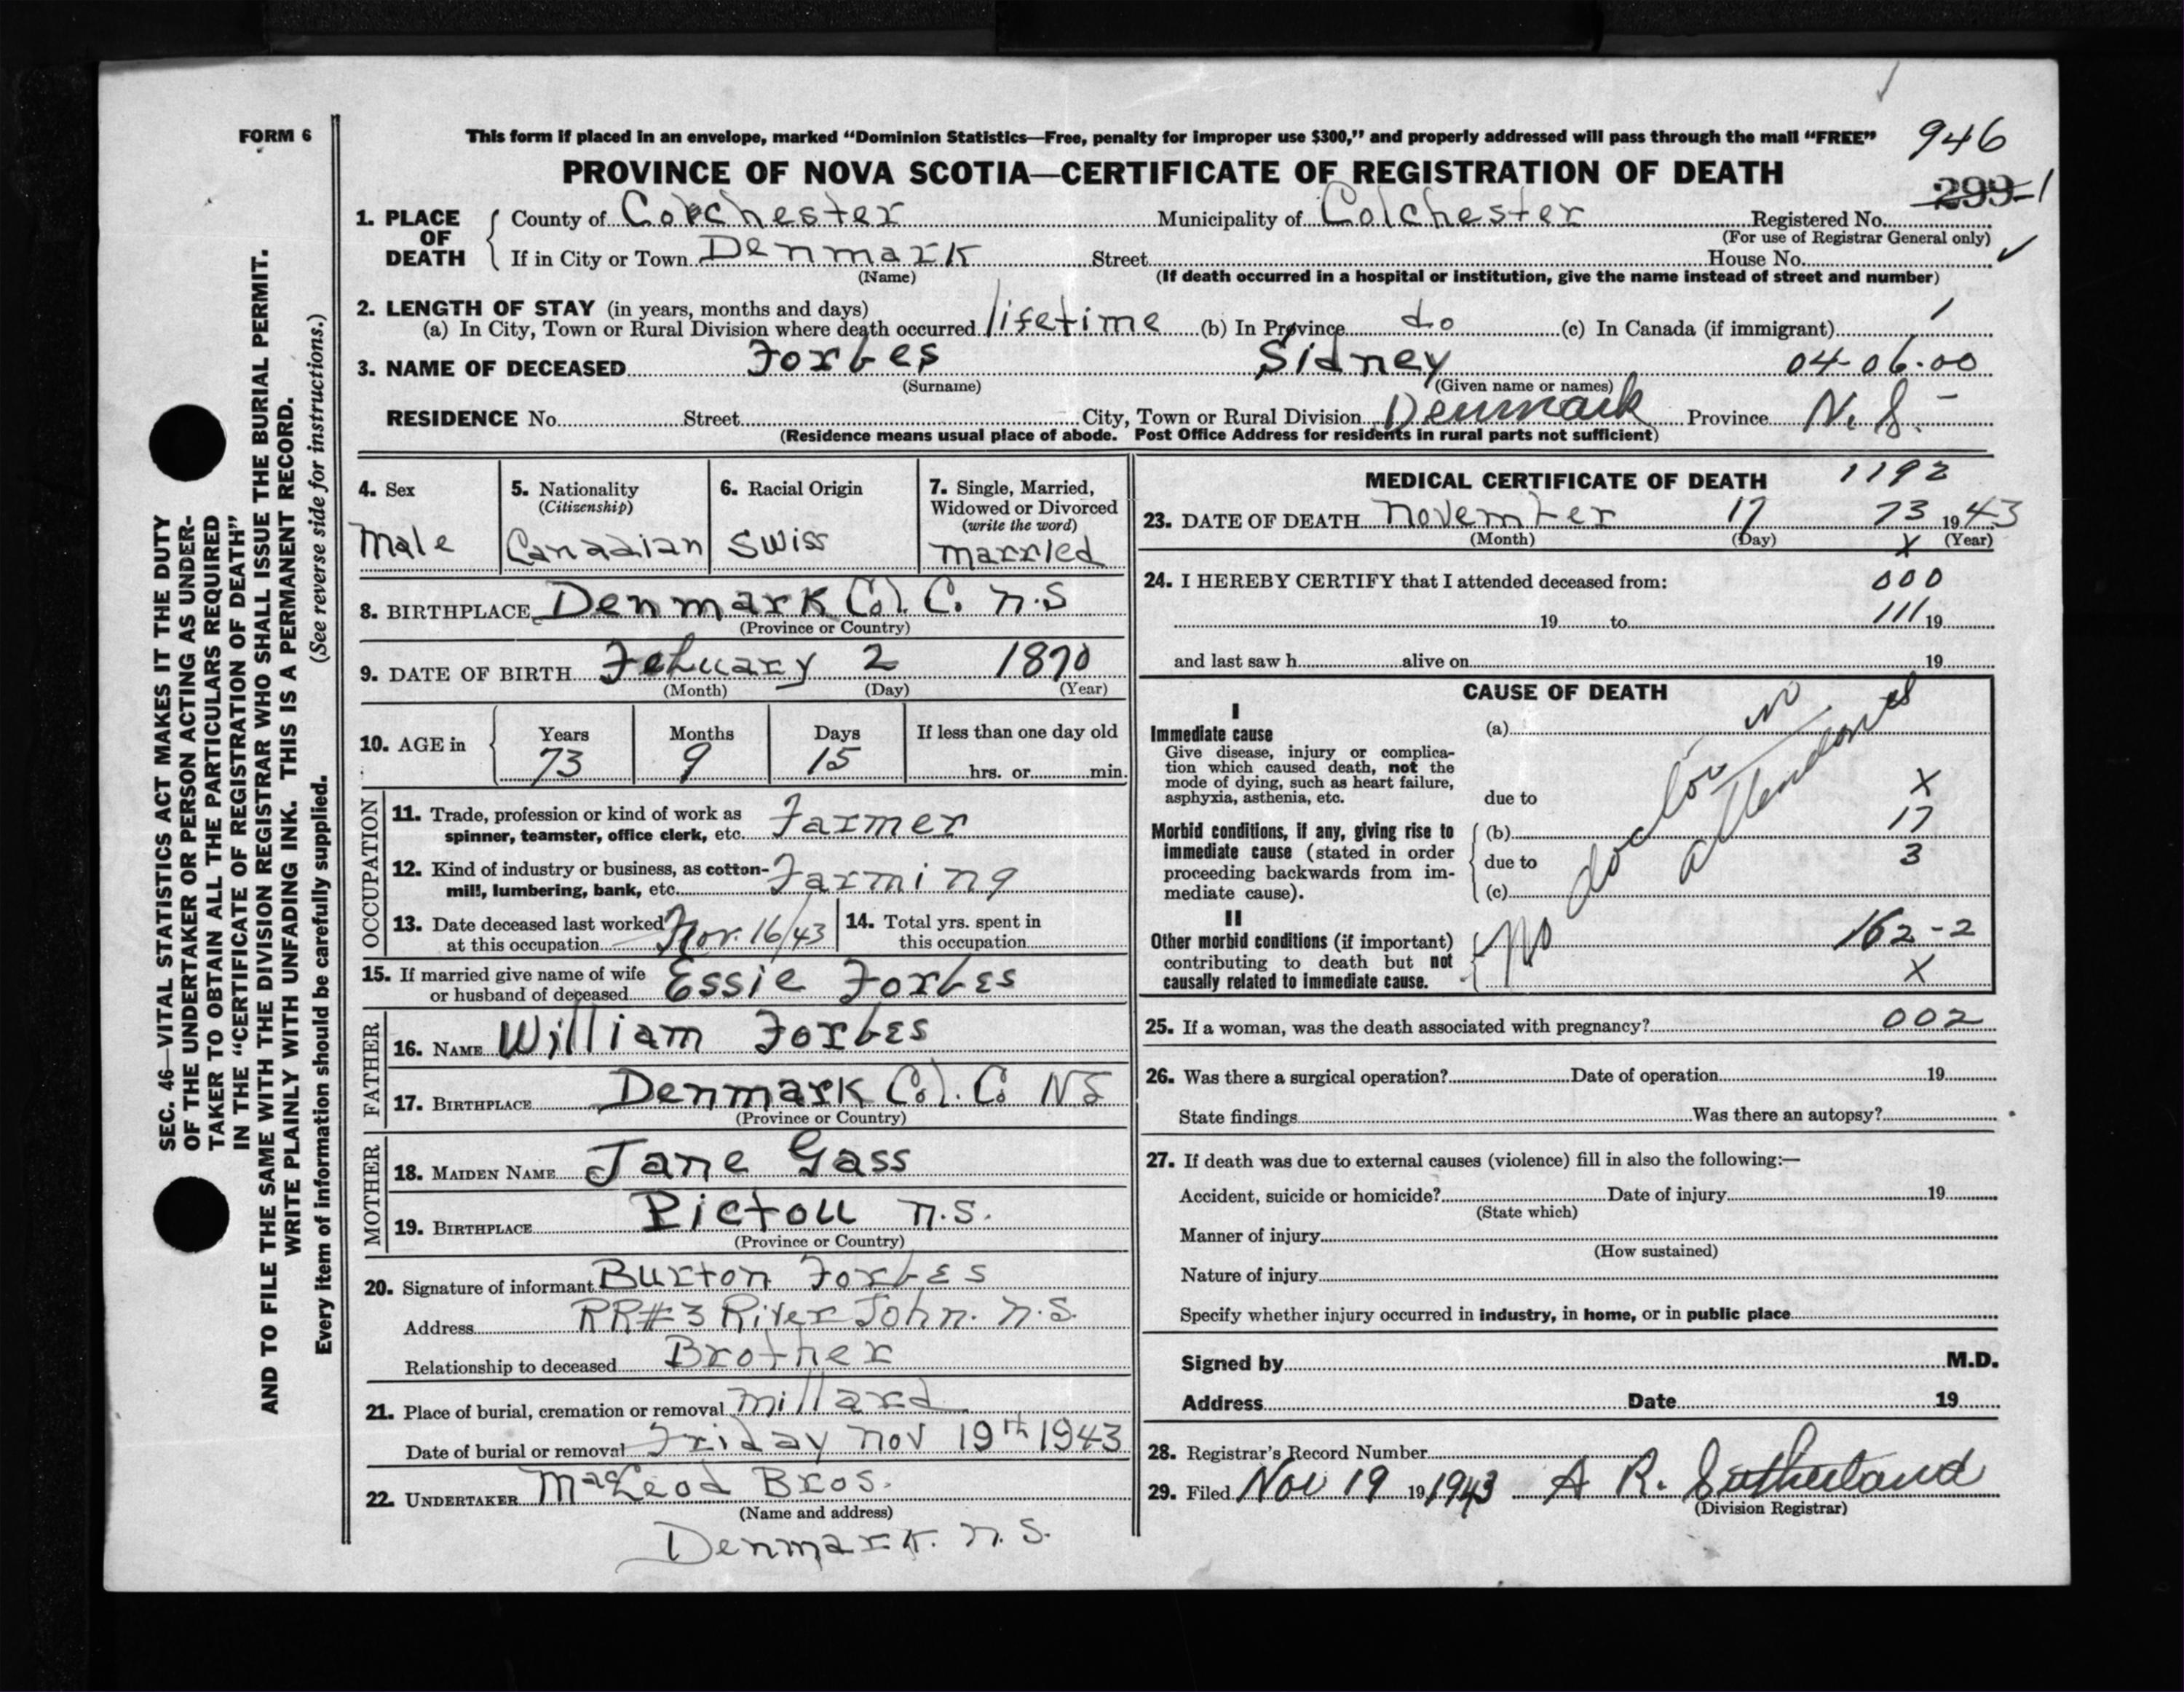 FORM 6
This form if placed in an envelope, marked “Dominion Statistics—Free, penalty for improper use $300,” and properly addressed will pass through the mail “FREE”
946
PROVINCE OF NOVA SCOTIA—CERTIFICATE OF REGISTRATION OF DEATH
299-1
1. PLACE OF DEATH
County of Colchester Municipality of Colchester Registered No.
(For use of Registrar General only)
If in City or Town Denmark Street House No.
(Name) (If death occurred in a hospital or institution, give the name instead of street and number)
2. LENGTH OF STAY (in years, months and days)
(a) In City, Town or Rural Division where death occurred lifetime (b) In Province do (c) In Canada (if immigrant)
3. NAME OF DECEASED Forbes Sidney 04-06-00
(Surname) (Given name or names)
RESIDENCE No. Street City, Town or Rural Division Denmark Province N. S.
(Residence means usual place of abode. Post Office Address for residents in rural parts not sufficient)
4. Sex
Male
5. Nationality
(Citizenship)
Canadian
6. Racial Origin
Swiss
7. Single, Married,
Widowed or Divorced
(write the word)
married
8. BIRTHPLACE Denmark Col. C. N.S
(Province or Country)
9. DATE OF BIRTH Febuary 2 1870
(Month) (Day) (Year)
10. AGE in
Years Months Days If less than one day old
73 9 15 hrs. or min.
OCCUPATION
11. Trade, profession or kind of work as
spinner, teamster, office clerk, etc. Farmer
12. Kind of industry or business, as cotton-
mill, lumbering, bank, etc. Farming
13. Date deceased last worked
at this occupation Nov. 16/43
14. Total yrs. spent in
this occupation
15. If married give name of wife
or husband of deceased Essie Forbes
FATHER
16. NAME William Forbes
17. BIRTHPLACE Denmark Col. Co NS
(Province or Country)
MOTHER
18. MAIDEN NAME Jane Gass
19. BIRTHPLACE Pictou N.S.
(Province or Country)
20. Signature of informant Burton Forbes
Address RR#3 River John. N.S.
Relationship to deceased Brother
21. Place of burial, cremation or removal Millard
Date of burial or removal Friday Nov 19th 1943
22. UNDERTAKER MacLeod Bros.
(Name and address)
Denmark. N.S.
MEDICAL CERTIFICATE OF DEATH 1192
23. DATE OF DEATH November 17 73 1943
(Month) (Day) X (Year)
24. I HEREBY CERTIFY that I attended deceased from: 000
19 to 111 19
and last saw h alive on 19
CAUSE OF DEATH
I
Immediate cause
Give disease, injury or complica-
tion which caused death, not the
mode of dying, such as heart failure,
asphyxia, asthenia, etc.
(a)
due to X
Morbid conditions, if any, giving rise to
immediate cause (stated in order
proceeding backwards from im-
mediate cause).
(b) 17
due to 3
(c)
II
Other morbid conditions (if important)
contributing to death but not
causally related to immediate cause.
No doctor in
attendance
162-2
X
25. If a woman, was the death associated with pregnancy? 002
26. Was there a surgical operation? Date of operation 19
State findings Was there an autopsy?
27. If death was due to external causes (violence) fill in also the following:—
Accident, suicide or homicide? Date of injury 19
(State which)
Manner of injury
(How sustained)
Nature of injury
Specify whether injury occurred in industry, in home, or in public place
Signed by M.D.
Address Date 19
28. Registrar's Record Number
29. Filed Nov 19 19 1943 A R. Sutherland
(Division Registrar)
SEC. 46—VITAL STATISTICS ACT MAKES IT THE DUTY
OF THE UNDERTAKER OR PERSON ACTING AS UNDER-
TAKER TO OBTAIN ALL THE PARTICULARS REQUIRED
IN THE “CERTIFICATE OF REGISTRATION OF DEATH”
AND TO FILE THE SAME WITH THE DIVISION REGISTRAR WHO SHALL ISSUE THE BURIAL PERMIT.
WRITE PLAINLY WITH UNFADING INK. THIS IS A PERMANENT RECORD.
(See reverse side for instructions.)
Every item of information should be carefully supplied.